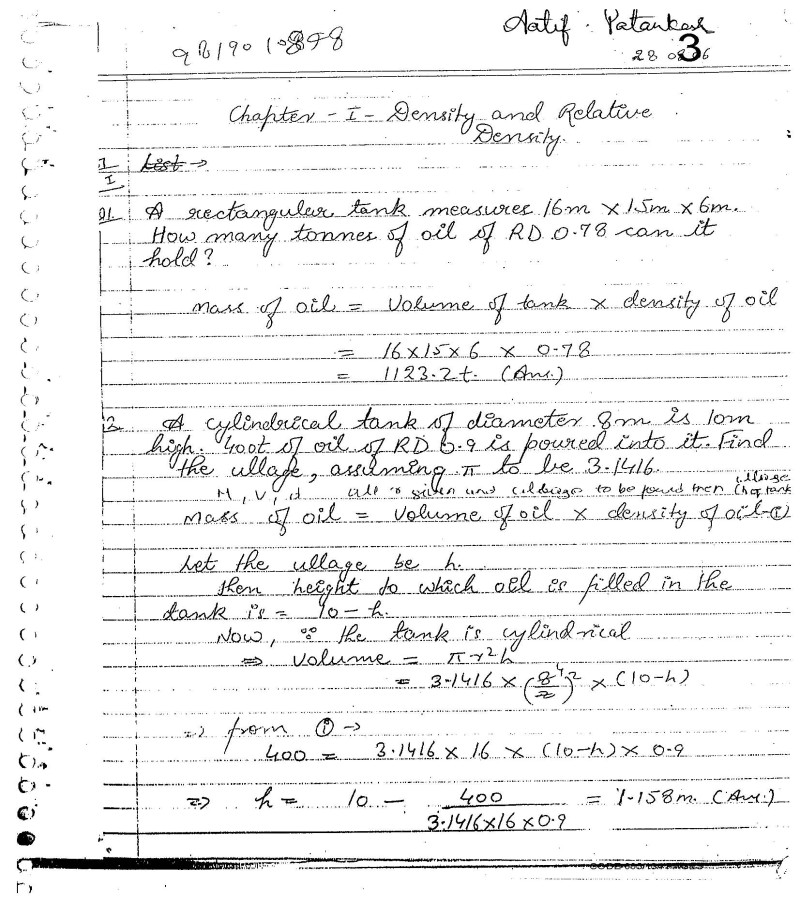 Aatif. Patankar
9819010898
28 08 06
3
Chapter - I - Density and Relative
Density.
I
I
List →
Q1. A rectangular tank measures 16m × 15m × 6m.
How many tonnes of oil of RD 0.78 can it
hold?
Mass of oil = Volume of tank × density of oil
= 16×15×6 × 0.78
= 1123.2t. (Ans.)
2. A cylindrical tank of diameter 8m is 10m
high. 400t of oil of RD 0.9 is poured into it. Find
the ullage, assuming π to be 3.1416.
M, V, d given and ullage to be found then
ullage
Mass of oil = Volume of oil × density of oil-①
Let the ullage be h.
then height to which oil is filled in the
tank is = 10 - h.
Now, ∵ the tank is cylindrical
⇒ Volume = πr²h
= 3.1416 × (8/2)² 4 × (10-h)
⇒ from ① →
400 = 3.1416 × 16 × (10-h) × 0.9
⇒ h = 10 - 400 / 3.1416×16×0.9 = 1.158m. (Ans.)